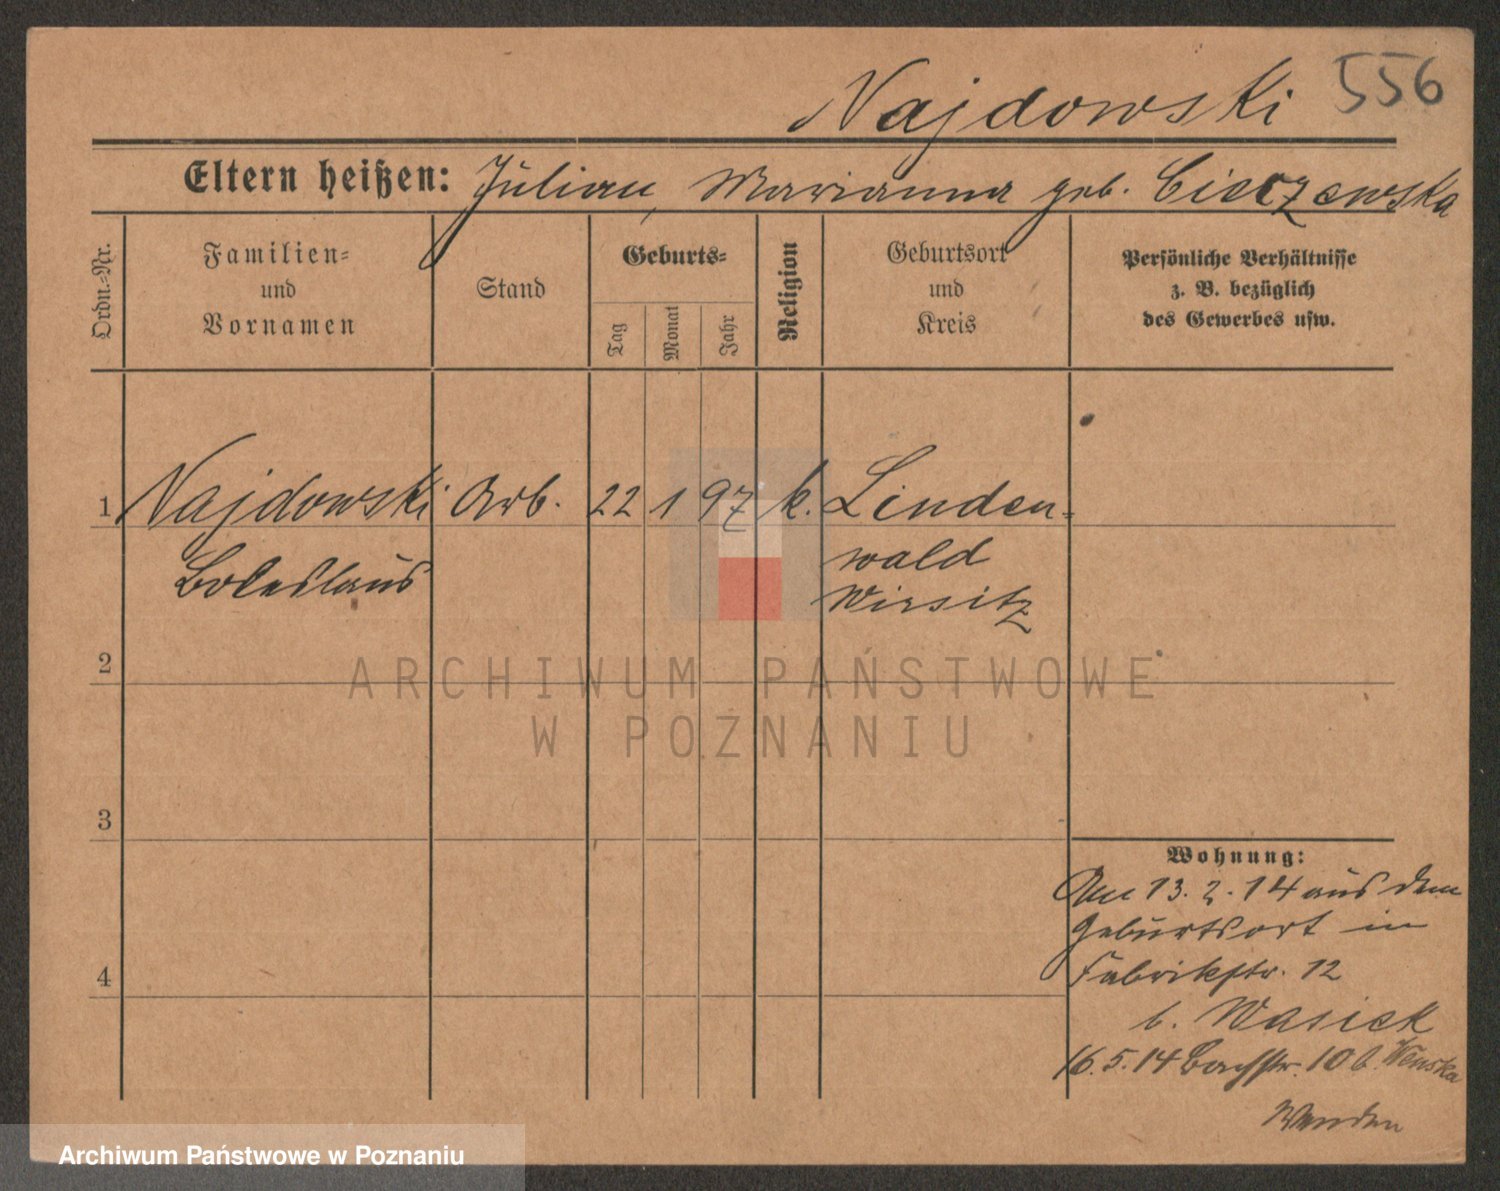 Najdowski 556
Eltern heißen: Julian, Marianna geb. Cierzewska
Ordn.-Nr.
Familien-
und
Vornamen
Stand
Geburts-
Tag
Monat
Jahr
Religion
Geburtsort
und
Kreis
Persönliche Verhältnisse
z. B. bezüglich
des Gewerbes usw.
1 Najdowski Arb. 22 1 97 k. Linden-
Boleslaus
wald
Wirsitz
2
3
4
Wohnung:
Am 13. 2. 14 aus dem
Geburtsort in
Fabrikstr. 12
b. Wasiek
16. 5. 14 Bachstr. 10 b. Wenska
Wenden
ARCHIWUM PAŃSTWOWE
W POZNANIU
Archiwum Państwowe w Poznaniu